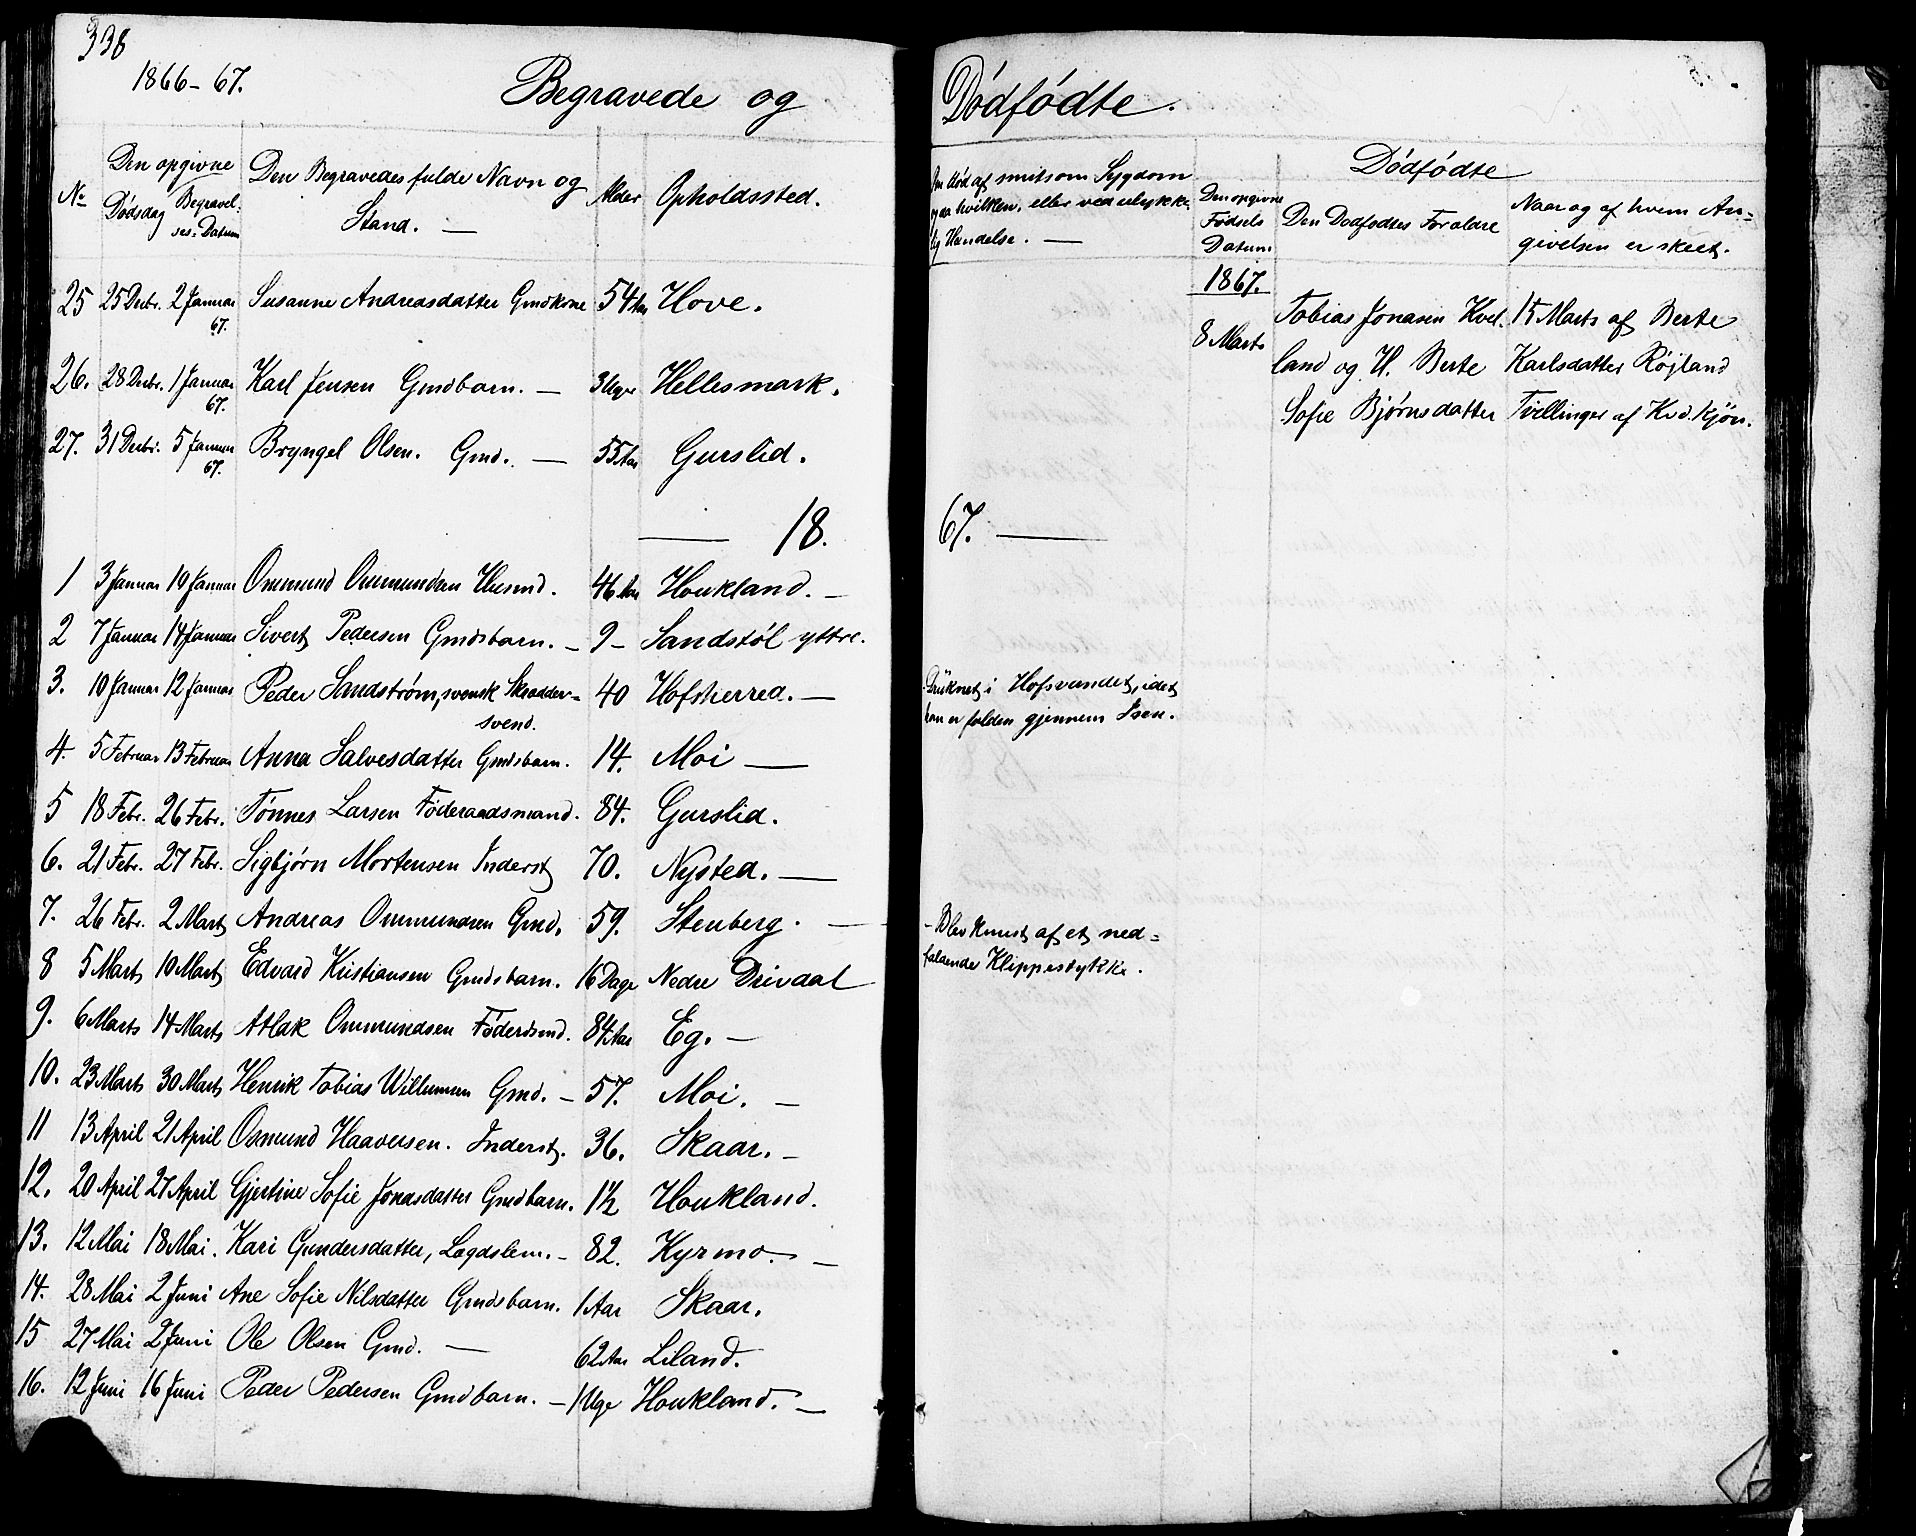 338
1866-67.
Begravede og Dödfödte.
No
Den opgivne
Dödsdag
Begravel-
ses-Datum
Den Begravedes fulde Navn og
Stand. —
Alder
Opholdssted.
Om död af smitsom Sygdom
og da hvilken, eller ved ulykke-
lig Hændelse. —
Dödfödte
Den opgivne
Födsels
Datum
Den Dödfödtes Forældre
Naar og af hvem An-
givelsen er skeet.
25 25 Decbr. 2 Januar 67. Susanne Andreasdatter Gmdkone 54 Aar Hove.
26. 28 Decbr. 1 Januar 67. Karl Jensen Gmdbarn. — 3 Uger Hellesmark.
27. 31 Decbr. 5 Januar 67. Bryngel Olsen. Gmd. — 55 Aar Gurslid.
1867.
8 Marts
Tobias Jonasen Kvel- 15 Marts af Berte
land og H. Berte Karlsdatter Röjland
Sofie Björnsdatter Tvillinger af Kvd. kjön.
— 18. 67. —
1 3 Januar 19 Januar Ommund Ommundsen Husmd. 46 Aar Houkland. —
2 7 Januar 14 Januar Sivert Pedersen Gmdsbarn. — 9 — Sandstöl yttre.
3. 10 Januar 12 Januar Peder Sandström, svensk Skrædder-
svend. 40 Hofsherred. — Druknet i Hofsvandet, idet
han er falden gjennem Isen.
4. 5 Februar 13 Februar Anna Salvesdatter Gmdsbarn. 14. Moi —
5 18 Febr. 26 Febr. Tönnes Larsen Föderaadsmand. 84. Gurslid.
6. 21 Febr. 27 Febr. Sigbjörn Mortensen Inderst 70. Nysted. —
7. 26 Febr. 2 Marts Andreas Ommundsen Gmd. 59. Stenberg. — - Blev knust af et ned-
faldende Klippestykke.
8 5 Marts 10 Marts Edvard Kristiansen Gmdsbarn. 16 Dage Nedre Drivdal
9. 6 Marts 14 Marts Atlak Ommundsen Föderdsmd. 84 Aar Eg. —
10. 23 Marts 30 Marts Henrik Tobias Willumsen Gmd. — 57. Moi. —
11 13 April 21 April Osmund Haaversen. Inderst. 36. Skaar. —
12. 20 April 27 April Gjertine Sofie Jonasdatter Gmdbarn. 1½ Houkland.
13. 12 Mai 18 Mai. Kari Gundersdatter, Lægdslem. — 82. Kyrmo. —
14. 28 Mai 2 Juni Ane Sofie Nilsdatter Gmdsbarn. 1 Aar Skaar.
15 27 Mai 2 Juni Ole Olsen Gmd. — 62 Aar Liland.
16. 12 Juni 16 Juni Peder Pedersen Gmdbarn. — 1 Uge Houkland. —